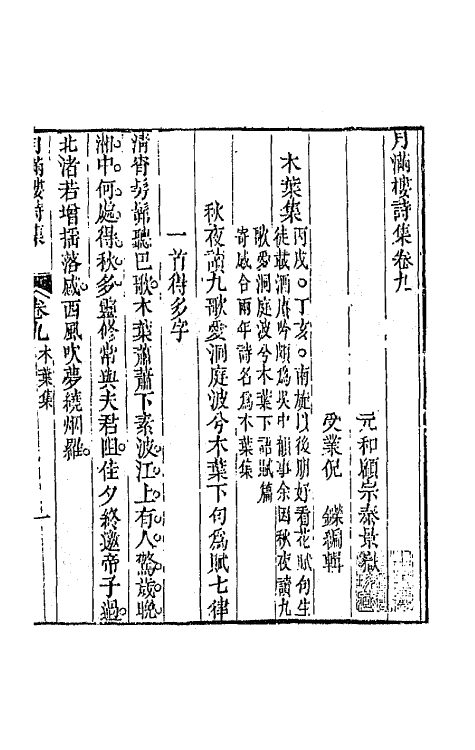 月滿樓詩集卷九
元和顧宗泰景嶽
受業倪鑅編輯
木葉集
丙戌。丁亥。南旋以後朋好看花賦句生
徒載酒賡吟頗爲吳中韻事余因秋夜讀九
歌愛洞庭波兮木葉下語賦篇
寄感合兩年詩名爲木葉集
秋夜讀九歌愛洞庭波兮木葉下句爲賦七律
一首得多字
淸宵髣髴聽巴歌木葉蕭蕭下素波江上有人驚歲晚
湘中何處得秋多蹇修常與夫君阻佳夕終邀帝子過
北渚若增搖落感西風吹夢繞烟羅
月滿樓詩集 卷九 木葉集 一